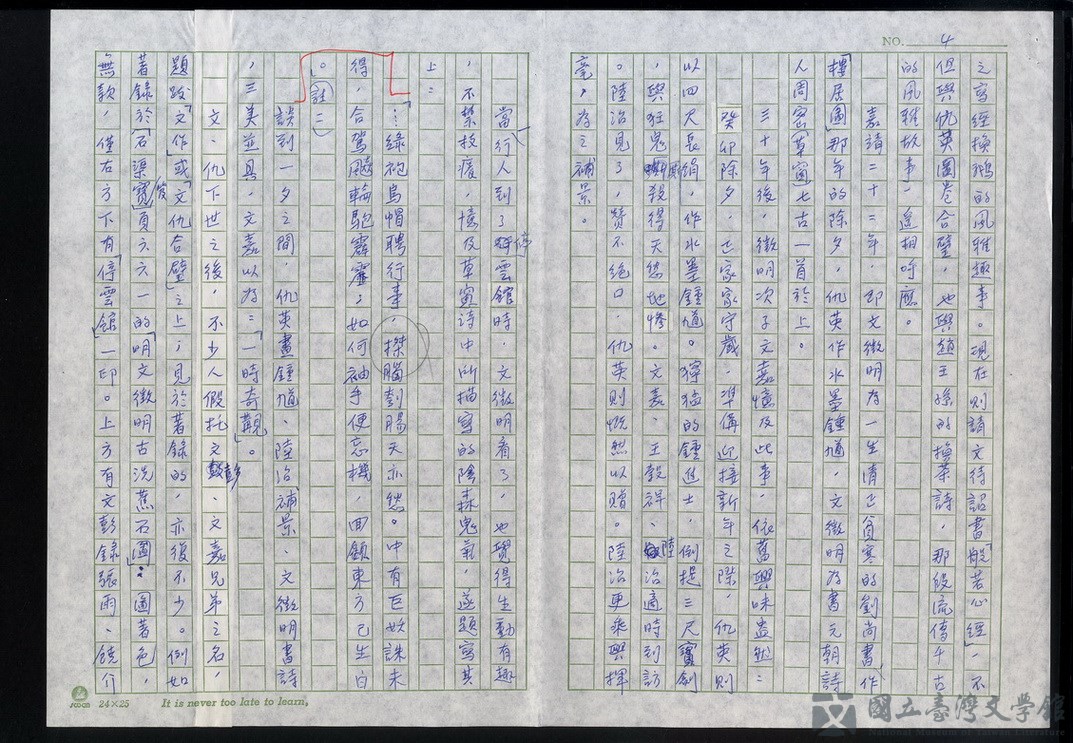 NO. 4
之寫經換鵝的風雅趣事。現在則請文待詔書「般若心經」,不
但與仇英圖卷合璧,也與趙王孫的換茶詩,那級流傳千古
的風雅故事,遙相呼應。
嘉靖二十二年,即文徵明為一生清正貧寒的劉尚書作
「樓居圖」那年的除夕,仇英作水墨鍾馗,文徵明為書元朝詩
人周密(草窗)七古一首於上。
三十年後,徵明次子文嘉憶及此事,依舊興味盎然:
癸卯除夕,正家家守歲,準備迎接新年之際,仇英則
以四尺長絹,作水墨鍾馗。獰猛的鍾進士,倒提三尺寶劍
,與狂鬼廝殺得天愁地慘。文嘉、王穀祥、陸治適時到訪
。陸治見了,贊不絕口,仇英則慨然以贈。陸治更乘興揮
毫,為之補景。
當行人到了停雲館時,文徵明看了,也覺得生動有趣
,不禁技癢,憶及草窗詩中所描寫的陰森鬼氣,遂題寫其
上:
「…綠袍烏帽聘行事,榤腦刳腸天亦然。中有巨妖誅未
得,合駕飇輪馳霹靂;如何袖手便忘機,回顧東方已生白
。」(註二)
談到一夕之間,仇英畫鍾馗、陸治補景、文徵明書詩
,三美並具,文嘉以為:「一時奇觀」。
文、仇下世之後,不少人假托文彭、文嘉兄弟之名,
題跋「文作」或「文仇合璧」之上,見於著錄的,亦復不少。例如
著錄於「石渠寶笈」頁六六一的「明文徵明古洗蕉石圖」:圖著色,
無款,僅右方下有「停雲館」一印。上方有文彭錄張雨、饒介
24×25 It is never too late to learn,
國立臺灣文學館
National Museum of Taiwan Literature